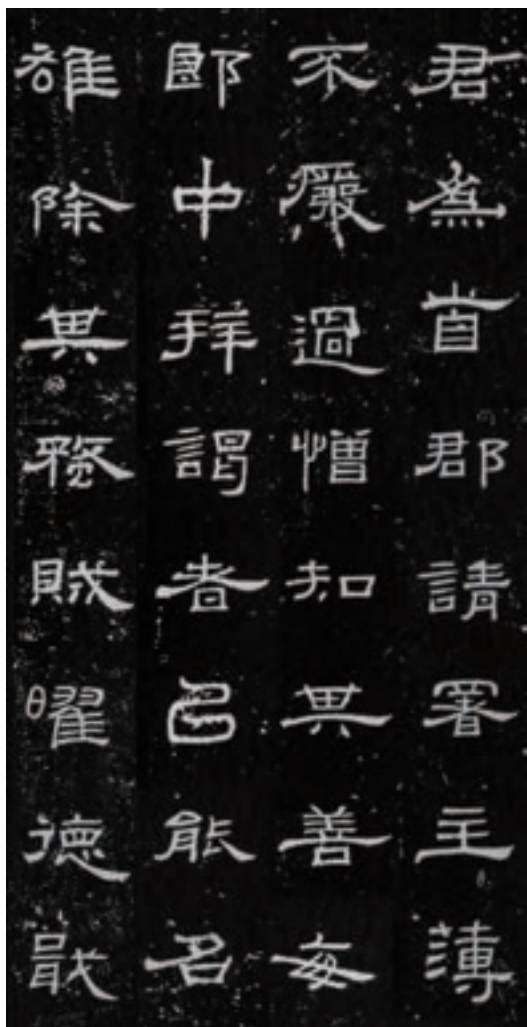 君為首郡請署主薄
不嚴過憎知其善每
郎中拜謁者㠯能名
雄除其蝥賊曜德戢